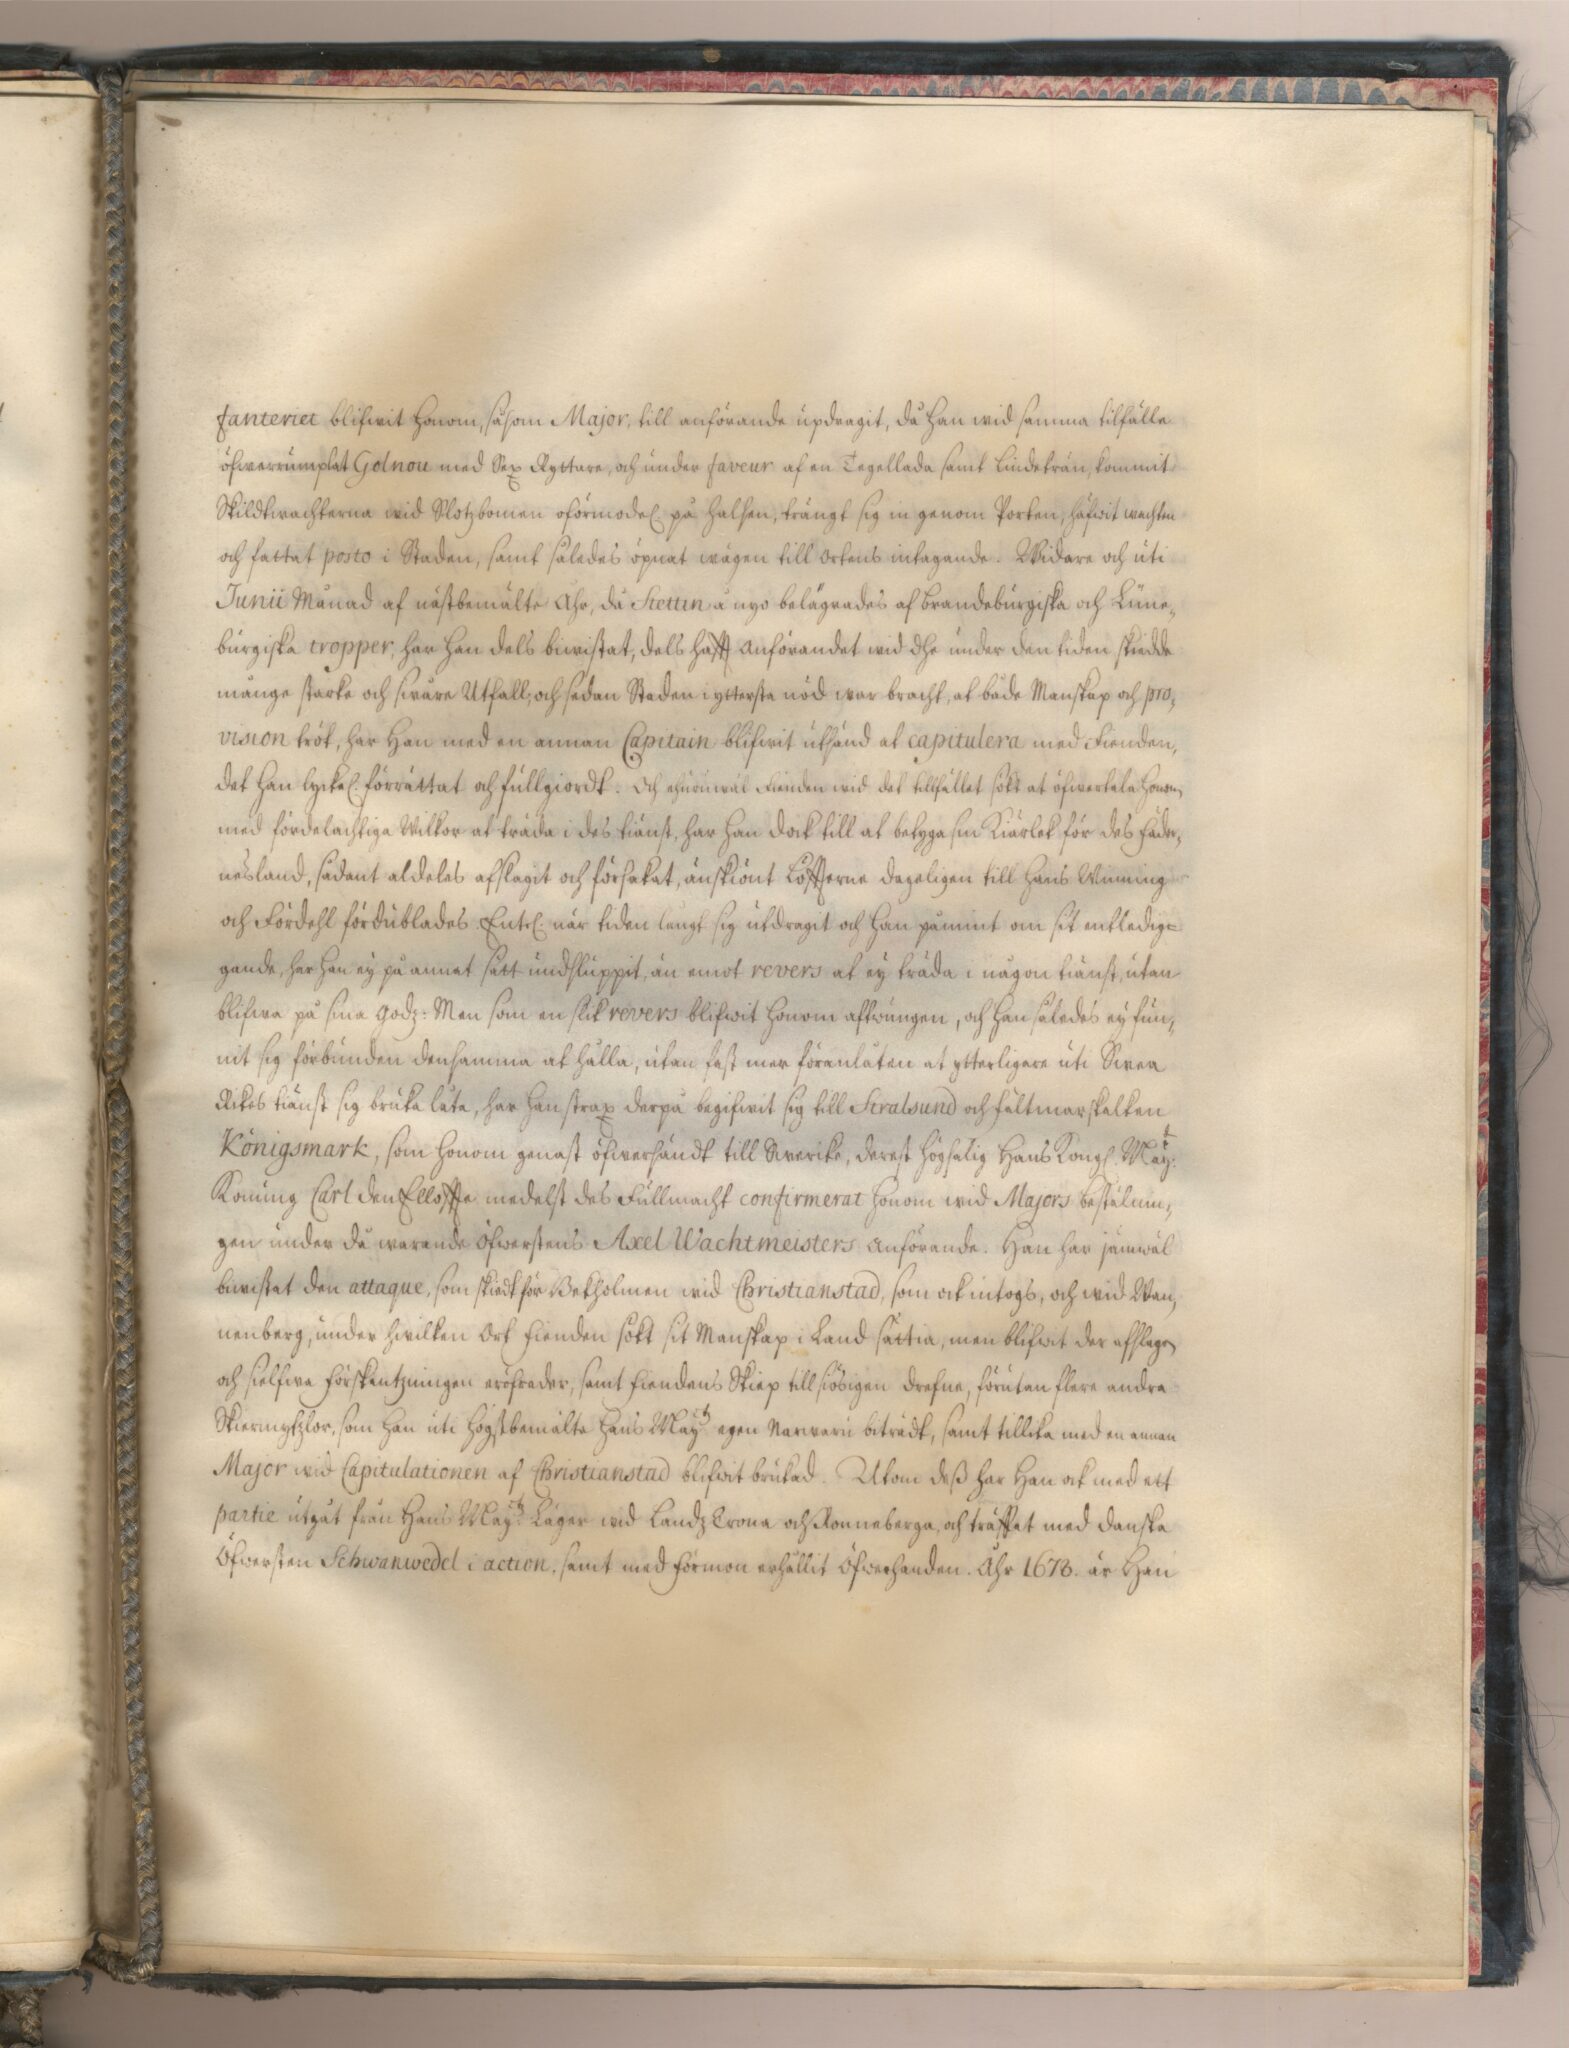 fanteriet blifwit honom, såsom Major, till anförande updragit, då han wid samma tilfälle
öfwerrumplat Golnou med Sex Ryttare, och under faveur af en Tegellada samt Lindeträn, kommit
Skildtwachterna wid Slotzbomen oförmodel. på halsen, trängt sig in genom Porten, häfwit wachten
och fattat posto i Staden, samt således öpnat wägen till Ortens intagande. Widare och uti
Junii Månad af nästbemälte Ahr, då Stettin å nyo belägrades af Brandeburgiska och Lüne,
burgiska tropper, har han dels biwistat, dels hafft Anförandet wid dhe under den tiden skiedde
månge starke och swåre Utfall, och sedan Staden i yttersta nöd war bracht, at både Manskap och pro,
vision tröt, har Han med en annan Capitain blifwit uthsänd at capitulera med Fienden,
det han lyckel. förrättat och fullgiordt. Och ehuruwäl Fienden wid det tillfället sökt at öfwertala honom
med fördelachtiga Wilkor at träda i des tiänst, har han dock till at betyga sin Kiärlek för des Fäder,
nesland, sådant aldeles afslagit och försakat, änskiönt Löfterne dageligen till hans Winning
och Fördehl fördublades. Entel. när tiden långt sig utdragit och han påmint om sit entledig=
gande, har han ey på annat sätt undsluppit, än emot revers at ey träda i någon tiänst, utan
blifwa på sina Godz: Men som en slik revers blifwit honom aftwungen, och han således ey fun,
nit sig förbunden densamma at hålla, utan fast mer föranlåten at ytterligare uti Swea
Rikes tiänst sig bruka låta, har han strax derpå begifwit sig till Stralsund och Fältmarskalken
Königsmark, som honom genast öfwersändt till Swerike, derest Högsalig Hans Kongl. May:t
Konung Carl den Ellofte medelst des Fullmacht confirmerat honom wid Majors bestälnin,
gen under då warande Öfwerstens Axel Wachtmeisters anförande. Han har jämwäl
biwistat den attaque, som skiedt för Bekholmen wid Christianstad, som ock intogs, och wid Wan,
nenberg, under hwilken Ort Fienden sökt sit Manskap i Land sättia, men blifwit der afslagen
och sielfwe Förskantzningen eröfrader, samt Fiendens Skiep till siösigen drefne, förutan flere andra
Skiermytzlor, som Han uti Högstbemälte Hans May:tz egen Narwaru biträdt, samt tillika med en annan
Major wid Capitulationen af Christianstad blifwit brukad. Utom deß har Han ock med ett
partie utgåt från Hans May:tz Läger wid Landz Crona och Ronneberga, och träffat med Danska
Öfwersten Schwanwedel i action, samt med förmon erhållit Öfwerhanden. Ahr 1678. är Han